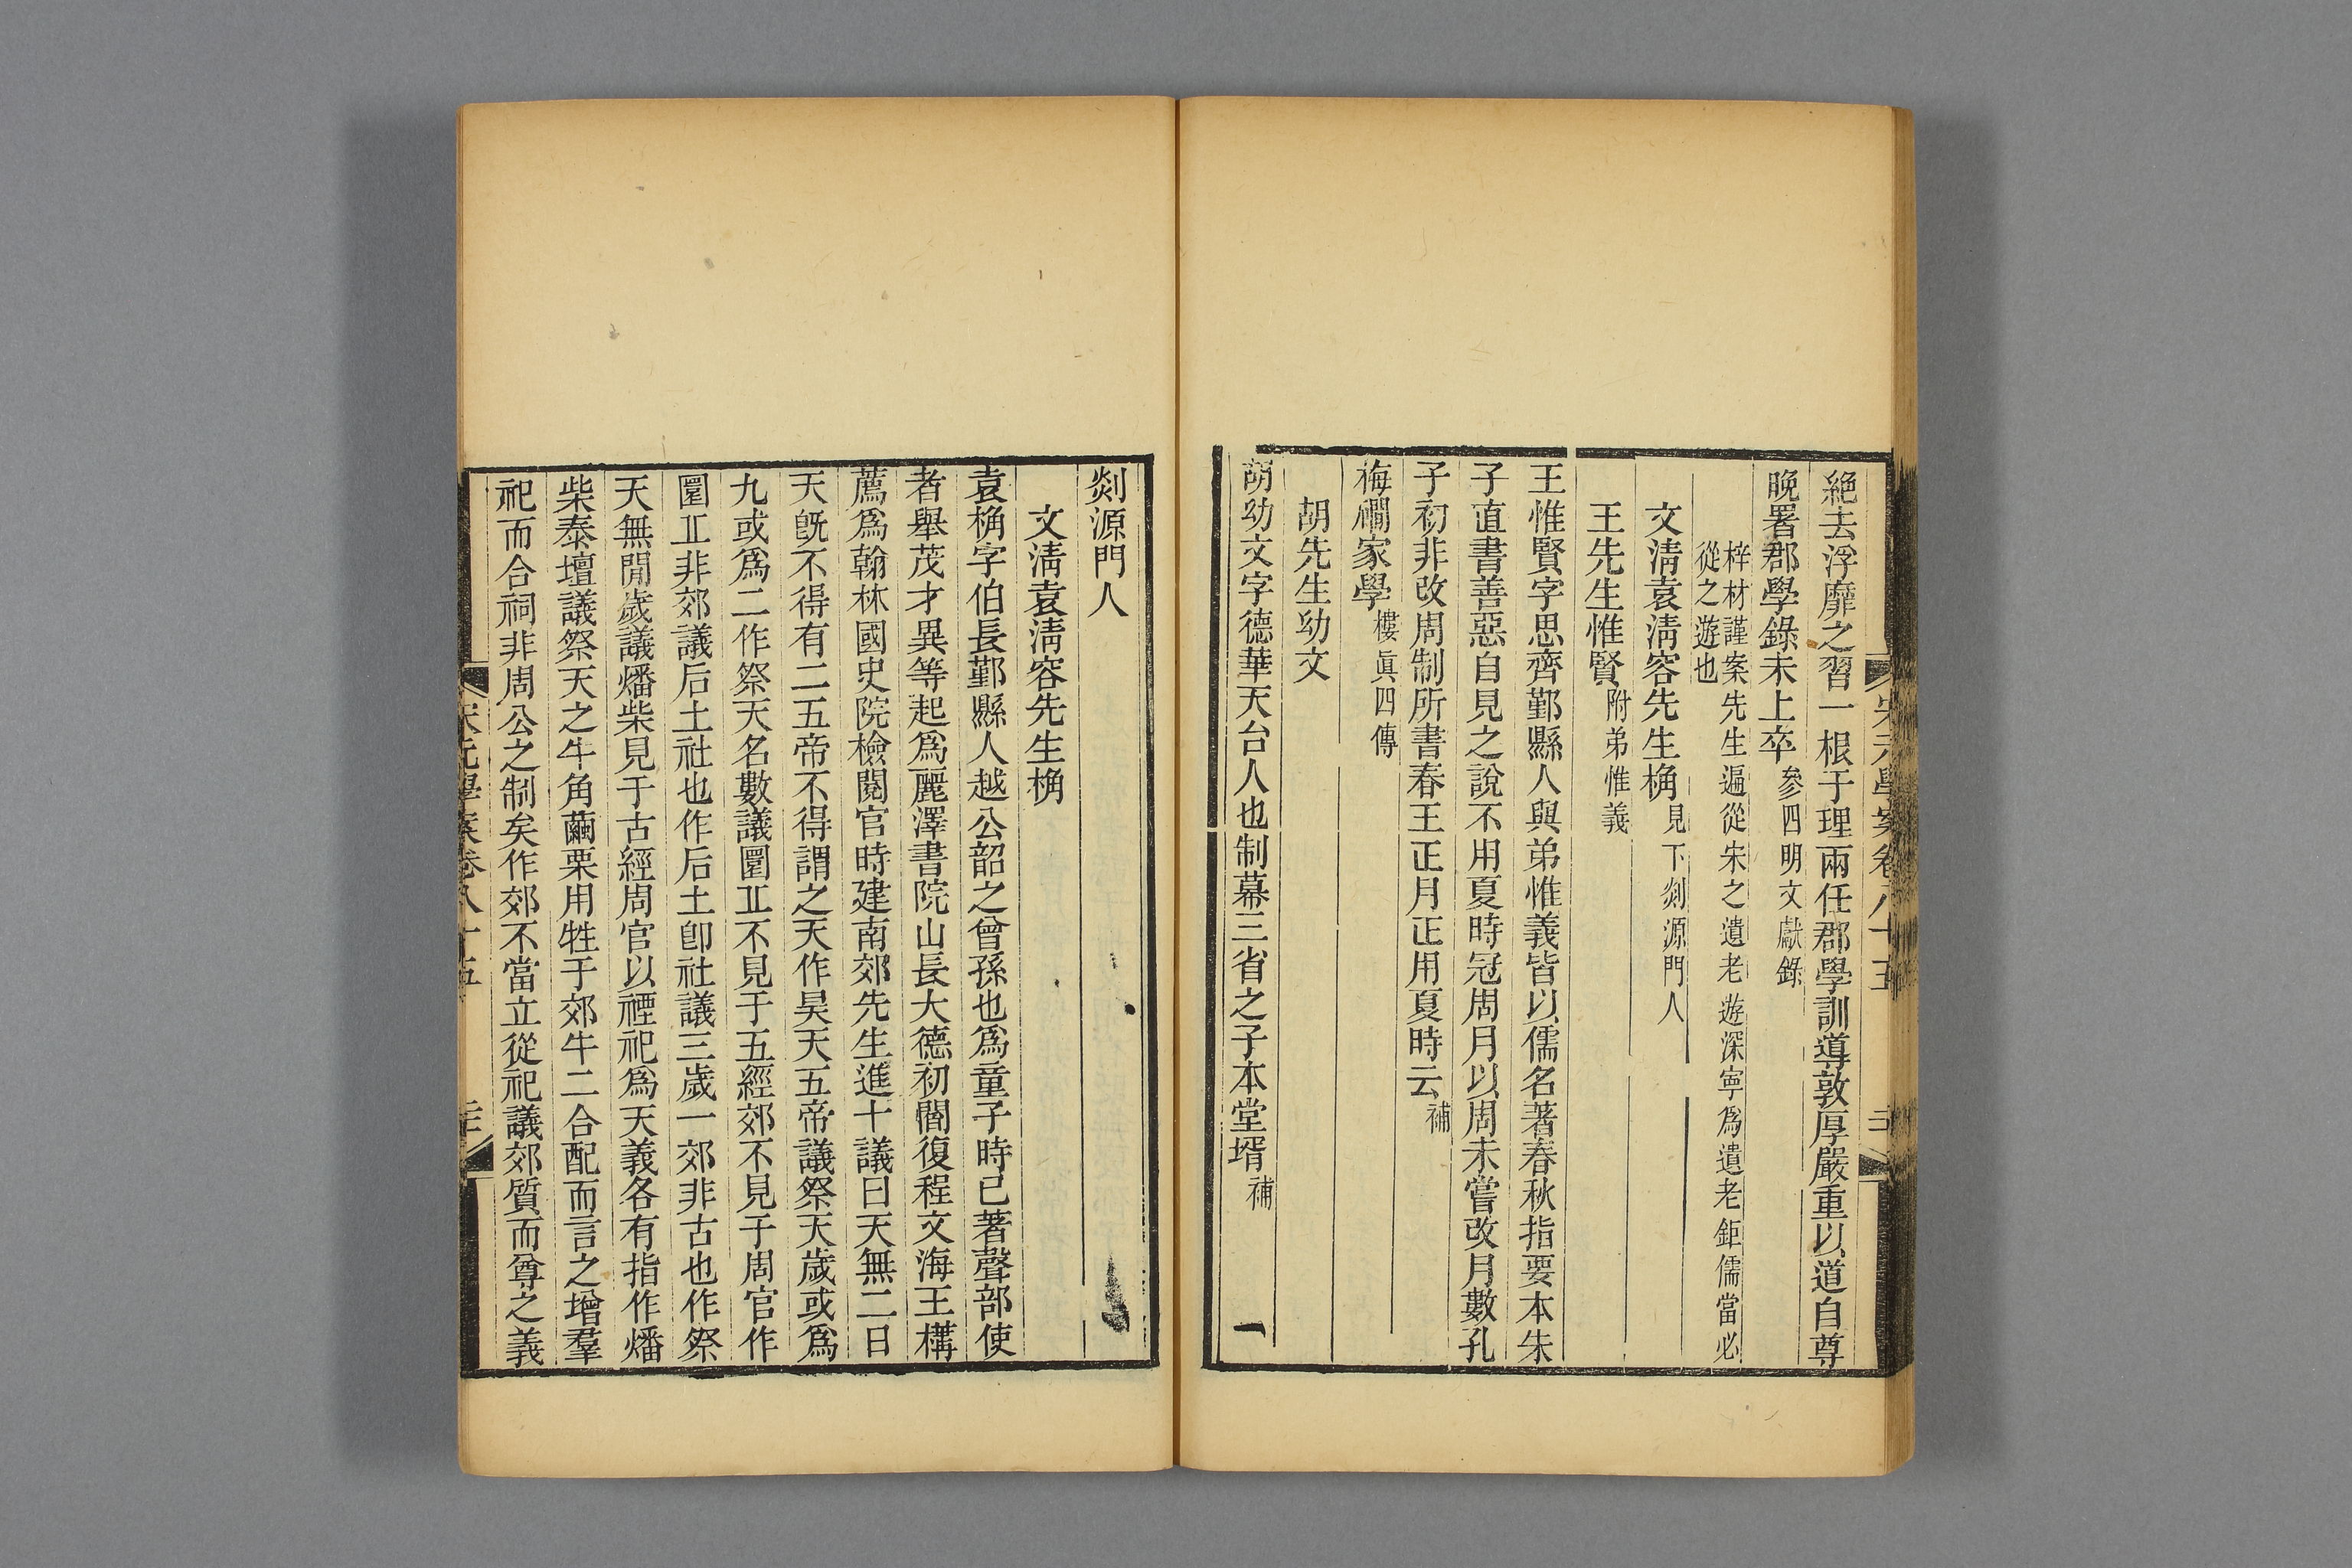 宋元學案卷八十五
絕去浮靡之習一根于理兩任郡學訓導敦厚嚴重以道自尊
晚署郡學錄未上卒參四明文獻錄
梓材謹案先生遍從宋之遺老遊深寧爲遺老鉅儒當必
從之遊也
文淸袁淸容先生桷見下剡源門人
王先生惟賢附弟惟義
王惟賢字思齊鄞縣人與弟惟義皆以儒名著春秋指要本朱
子直書善惡自見之說不用夏時冠周月以周未嘗改月數孔
子初非改周制所書春王正月正用夏時云補
梅磵家學樓眞四傳
胡先生幼文
胡幼文字德華天台人也制幕三省之子本堂壻補
剡源門人
文淸袁淸容先生桷
袁桷字伯長鄞縣人越公韶之曾孫也爲童子時已著聲部使
者舉茂才異等起爲麗澤書院山長大德初閻復程文海王構
薦爲翰林國史院檢閱官時建南郊先生進十議曰天無二日
天旣不得有二五帝不得謂之天作昊天五帝議祭天歲或爲
九或爲二作祭天名數議圜丘不見于五經郊不見于周官作
圜丘非郊議后土社也作后土卽社議三歲一郊非古也作祭
天無閒歲議燔柴見于古經周官以禋祀爲天義各有指作燔
柴泰壇議祭天之牛角繭栗用牲于郊牛二合配而言之增羣
祀而合祠非周公之制矣作郊不當立從祀議郊質而尊之義
宋元學案卷八十五